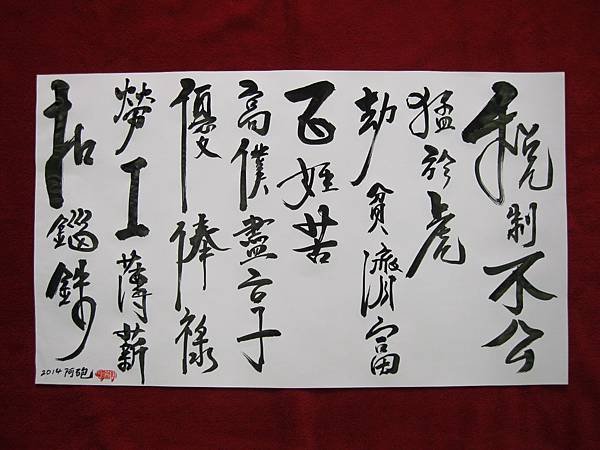 稅制不公
猛於虎
劫貧濟富
百姓苦
高僕盡享
優俸祿
勞工薄薪
拈錙銖
2014 阿砲